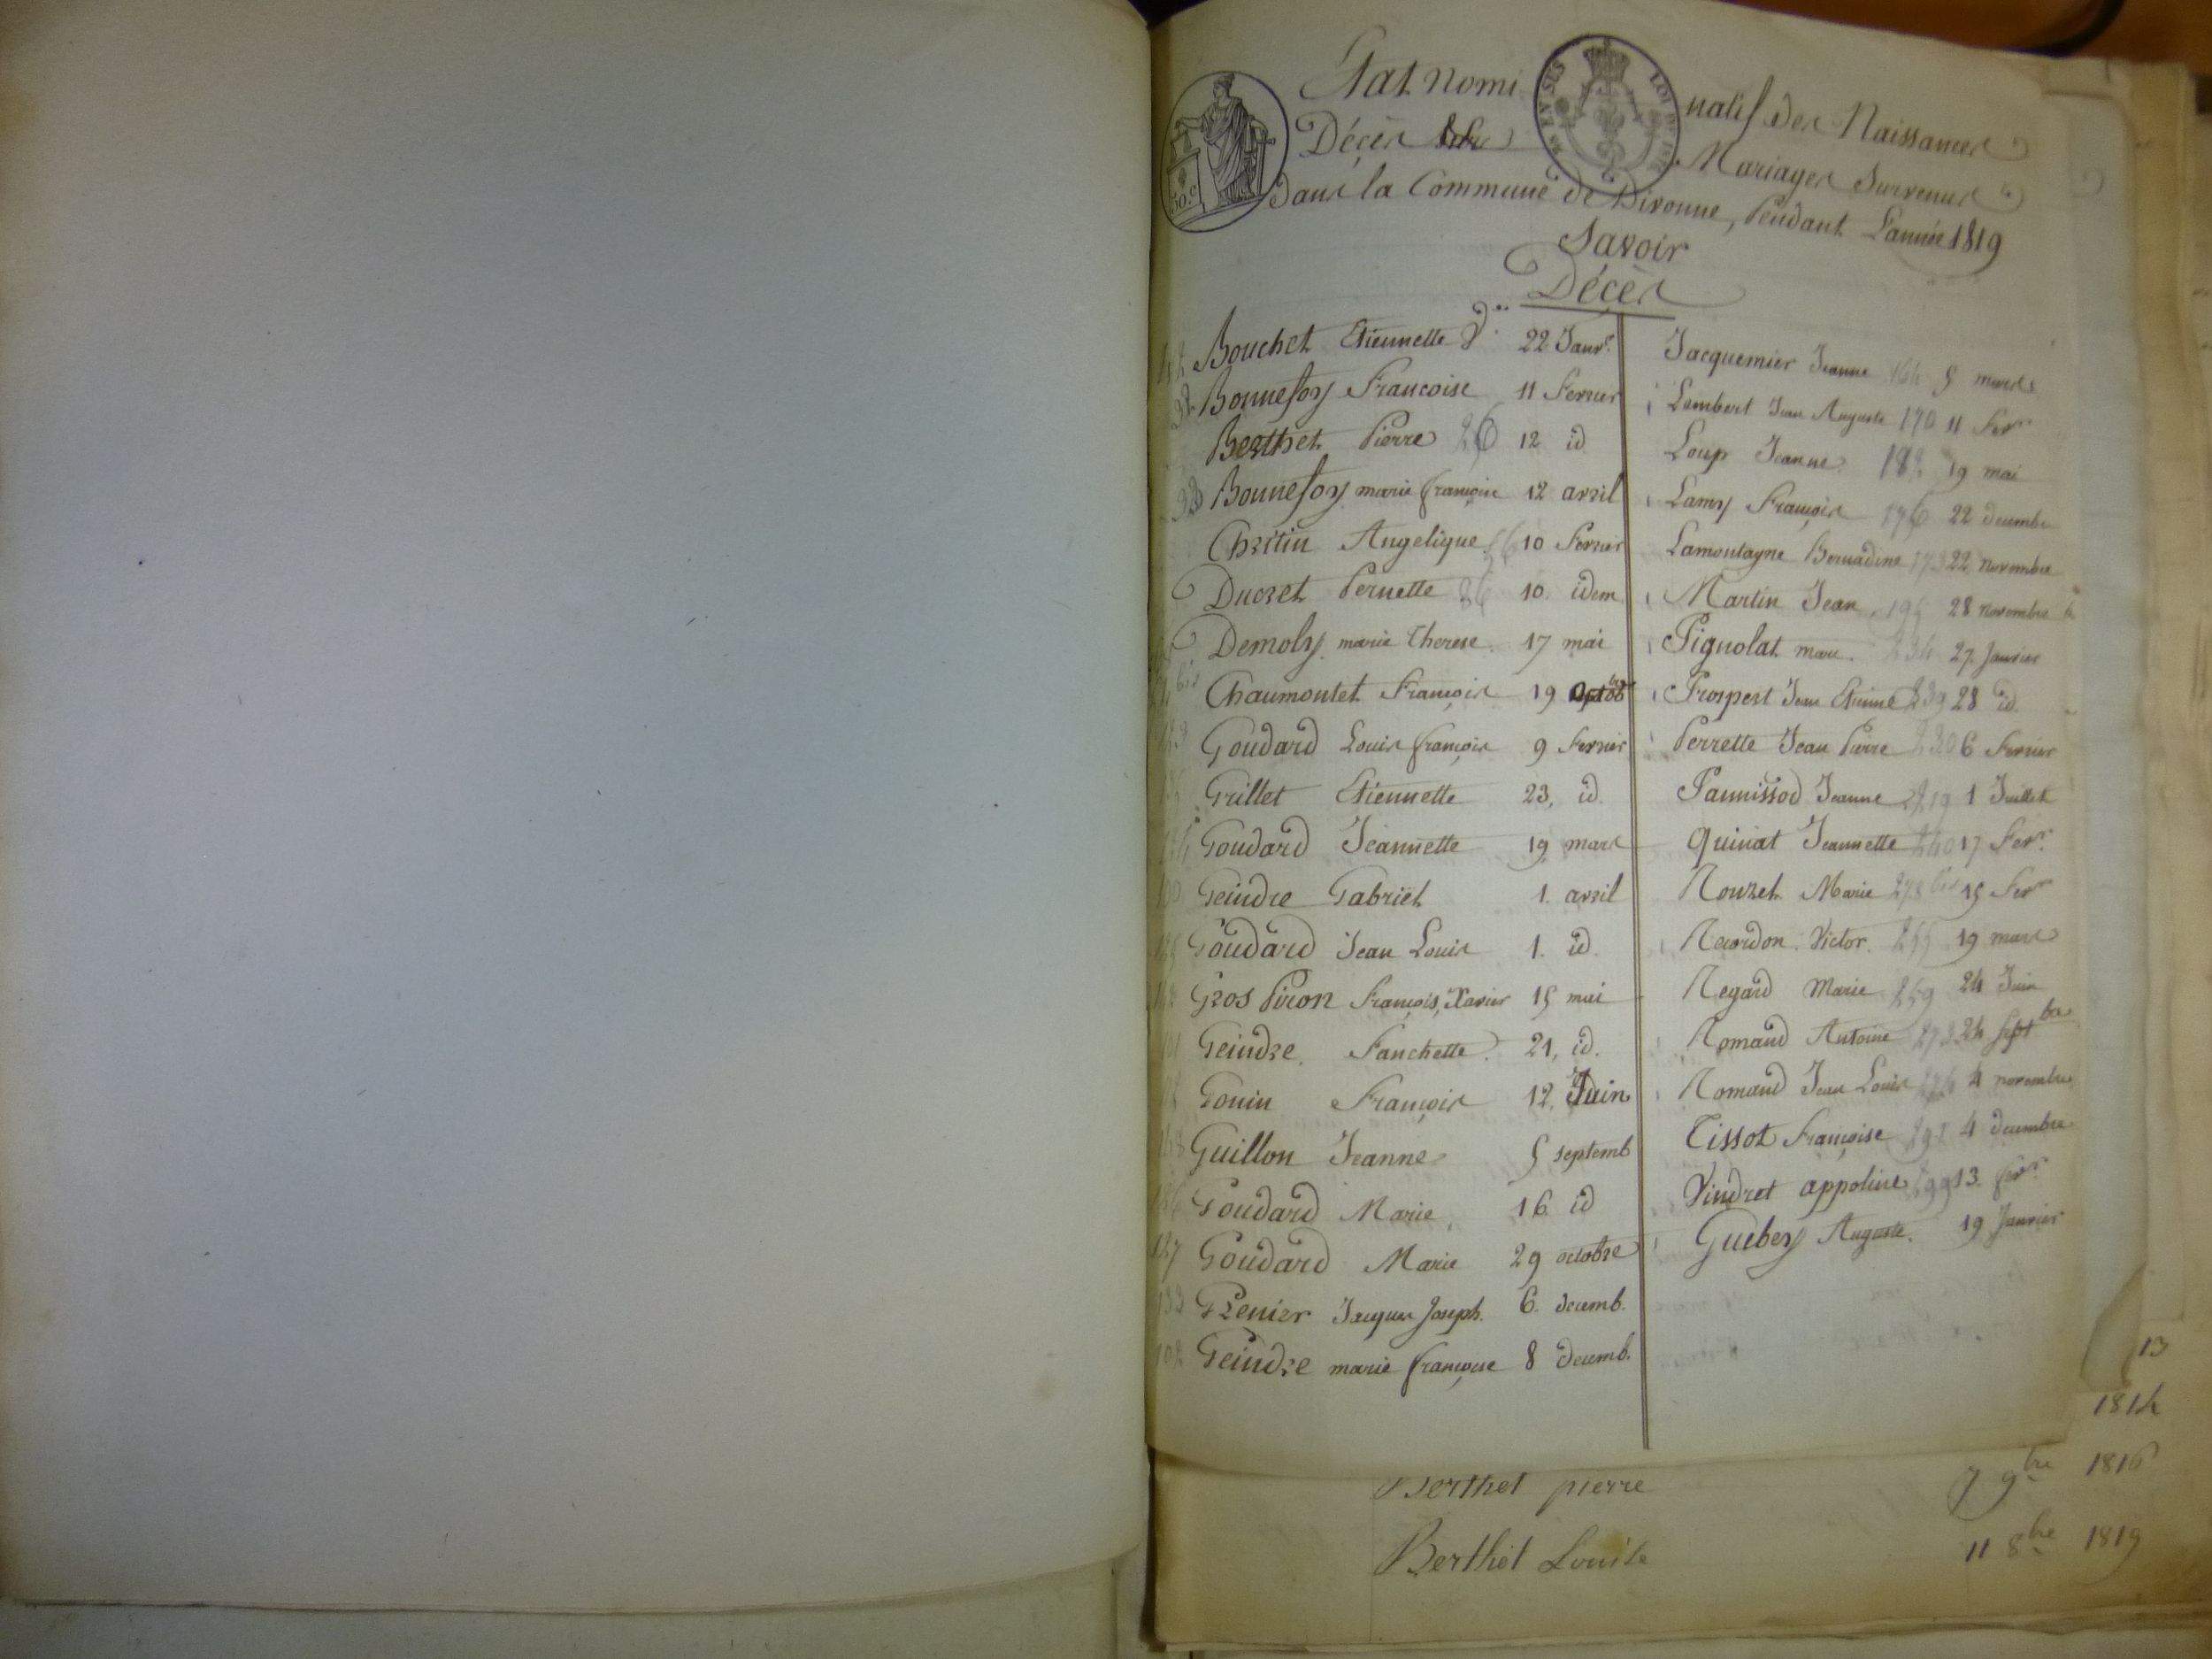 Etat nominatif des Naissances
Décès Mariages Survenus
dans la Commune de Divonne, Pendant L'année 1819
Savoir
Décès
Bouchet Etiennette 22 Janvr.
Bonnefoy Francoise 11 Fevrier
Berthet Pierre 26 12 id
Bonnefoy marie françoise 12 avril
Chretin Angelique 10 Fevrier
Ducret Pernette 86 10. idem
Demoly marie Therese. 17 mai
Chaumontet François 19
Goudard Louis françois 9 Fevrier
Grillet Etiennette 23, id.
Goudard Jeannette 19 mars
Geindre Gabriel 1. avril
Goudard Jean Louis 1. id.
Gros Piron François, Xavier 15 mai
Geindre. Fanchette. 21, id.
Gonin François 12. Juin
Guillon Jeanne 5 septemb
Goudard Marie 16 id
127 Goudard Marie 29 octobre
133 Grenier Jacques Joseph. 6. decemb.
102 Geindre marie françoise 8 decemb.
Jacquemier Jeanne 164 5 mars
Lambert Jean Auguste 170 11 Fevr
Loup Jeanne 19 mai
Lamy François 176 22 decembre
Lamontagne Bernadine 173 22 novembre
Martin Jean 195 28 novembre
Pignolat marc. 234 27. Janvier
Prospert Jean Etienne 239 28 id.
Perrette Jean Pierre 230 6 Fevrier
Pannissod Jeanne 219 1 Juillet
Quinat Jeannette 240 17 Fevr.
Rouzet Marie 278 bis 15 Fevr
Reordon. Victor. 255 19 mars
Regard Marie 259 24 Juin
Romand Antoine 273 24 septbre
Romand Jean Louis 276 4 novembre
Tissot Françoise 291 4 decembre
Vindret appoline 299 13. fevr.
Guebey Auguste. 19 Janvier
13
1814
Berthet pierre 7 9bre 1816
Berthet Louise 11 8bre 1819